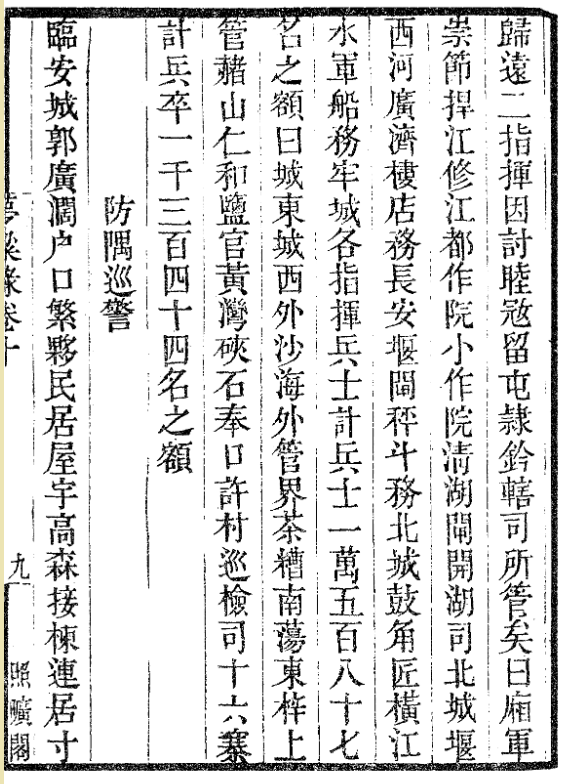 歸遠二指揮因討睦宼留屯隷鈐轄司所管矣曰廂軍
崇節捍江修江都作院小作院淸湖閘開湖司北城堰
西河廣濟樓店務長安堰閘秤斗務北城鼓角匠橫江
水軍船務牢城各指揮兵士計兵士一萬五百八十七
名之額曰城東城西外沙海外管界茶糟南蕩東梓上
管赭山仁和鹽官黃灣硤石奉口許村巡檢司十六寨
計兵卒一千三百四十四名之額
防隅巡警
臨安城郭廣濶户口繁夥民居屋宇高森接棟連居寸
夢粱錄卷十 九 照曠閣